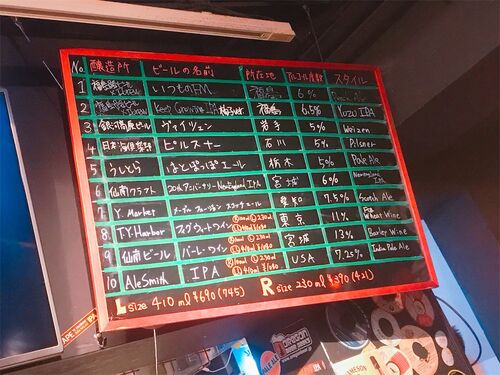 No. 醸造所 ビールの名前 所在地 アルコール度数 スタイル
1 福島路ビール いつものFM 福島 6% Pale Ale
2 福島路ビール Keep Growing IPA 福島 6.5% Yuzu IPA
3 銀河高原ビール ヴァイツェン 岩手 5% Weizen
4 日本海倶楽部 ピルスナー 石川 5% Pilsner
5 うしとら はとぽっぽエール 栃木 5% Pale Ale
6 仙南クラフト 20thアニバーサリー NewEngland IPA 宮城 6% NewEngland IPA
7 Y.Market メープルフュージョン スコッチエール 愛知 7.5% Scotch Ale
8 T.Y.Harbor ウィートワイン 東京 11% Wheat Wine
9 仙南ビール バーレーワイン 宮城 13% Barley Wine
10 AleSmith IPA USA 7.25% India Pale Ale
L size 410ml ¥690(745) R size 230ml ¥390(421)